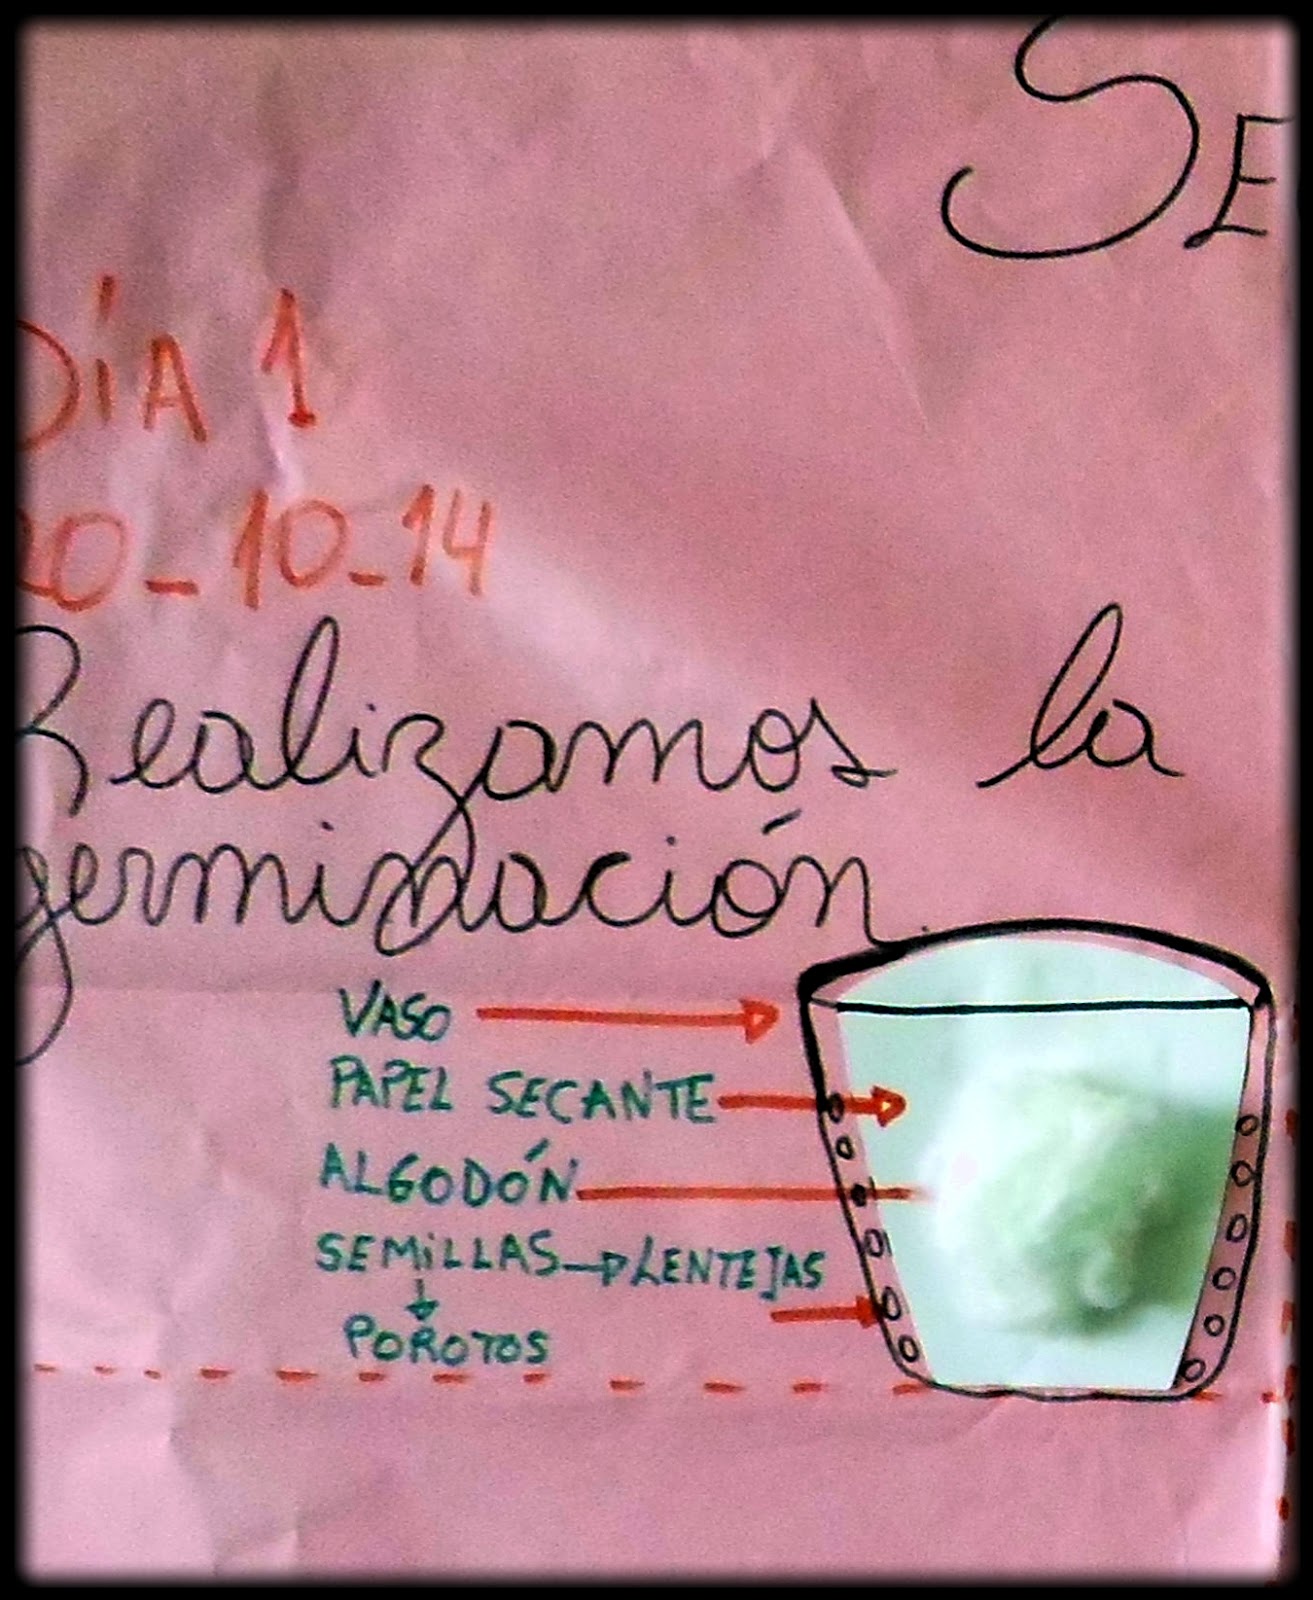 SE
DÍA 1
20-10-14
Realizamos la
germinación.
VASO
PAPEL SECANTE
ALGODÓN
SEMILLAS → LENTEJAS
POROTOS